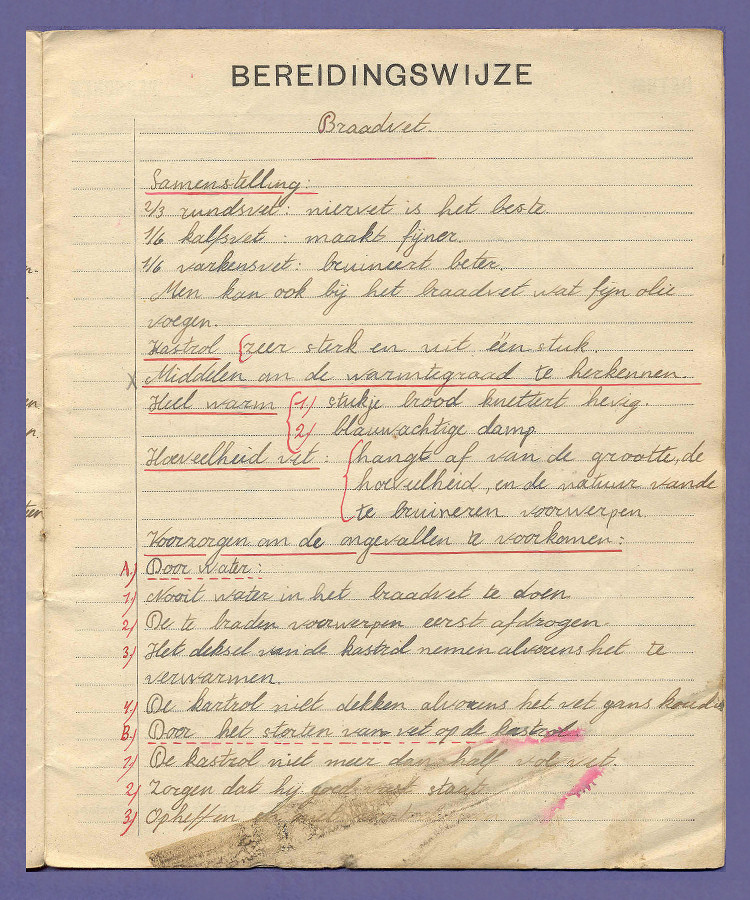 BEREIDINGSWIJZE
Braadvet.
Samenstelling:
2/3 rundsvet: niervet is het beste
1/6 kalfsvet : maakt fijner.
1/6 varkensvet: bruineert beter.
Men kan ook bij het braadvet wat fijn olie
voegen.
Kastrol { zeer sterk en uit één stuk.
X Middelen om de warmtegraad te herkennen
Heel warm { 1) stukje brood knettert hevig.
2) blauwachtige damp
Hoeveelheid vet : { hangt af van de grootte, de
hoeveelheid, en de natuur van de
te bruineren voorwerpen
Voorzorgen om de ongevallen te voorkomen:
A) Door water:
1) Nooit water in het braadvet te doen
2) De te braden voorwerpen eerst afdrogen.
3) Het deksel van de kastrol nemen alvorens het te
verwarmen.
4) De kastrol niet dekken alvorens het vet gans koud is
B) Door het storten van vet op de kastrol
1) De kastrol niet meer dan half vol vet.
2) Zorgen dat hij goed vast staat
3) Opheffen en niet